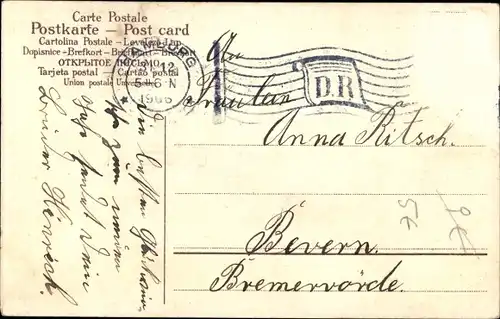 Carte Postale
Postkarte – Post card
Cartolina Postale – Levelező-Lap
Dopisnice – Brefkort – Briefkaart – Brevkort
ОТКРЫТОЕ ПИСЬМО
Tarjeta postal – Cartão postal
Union postale Universelle
12
5-6 N
1906
D.R.
An
Fräulein
Anna Ritsch.
Bevern.
Bremervörde.
Die besten
zum neuen
Jahr sendet Dein
Bruder Heinrich.